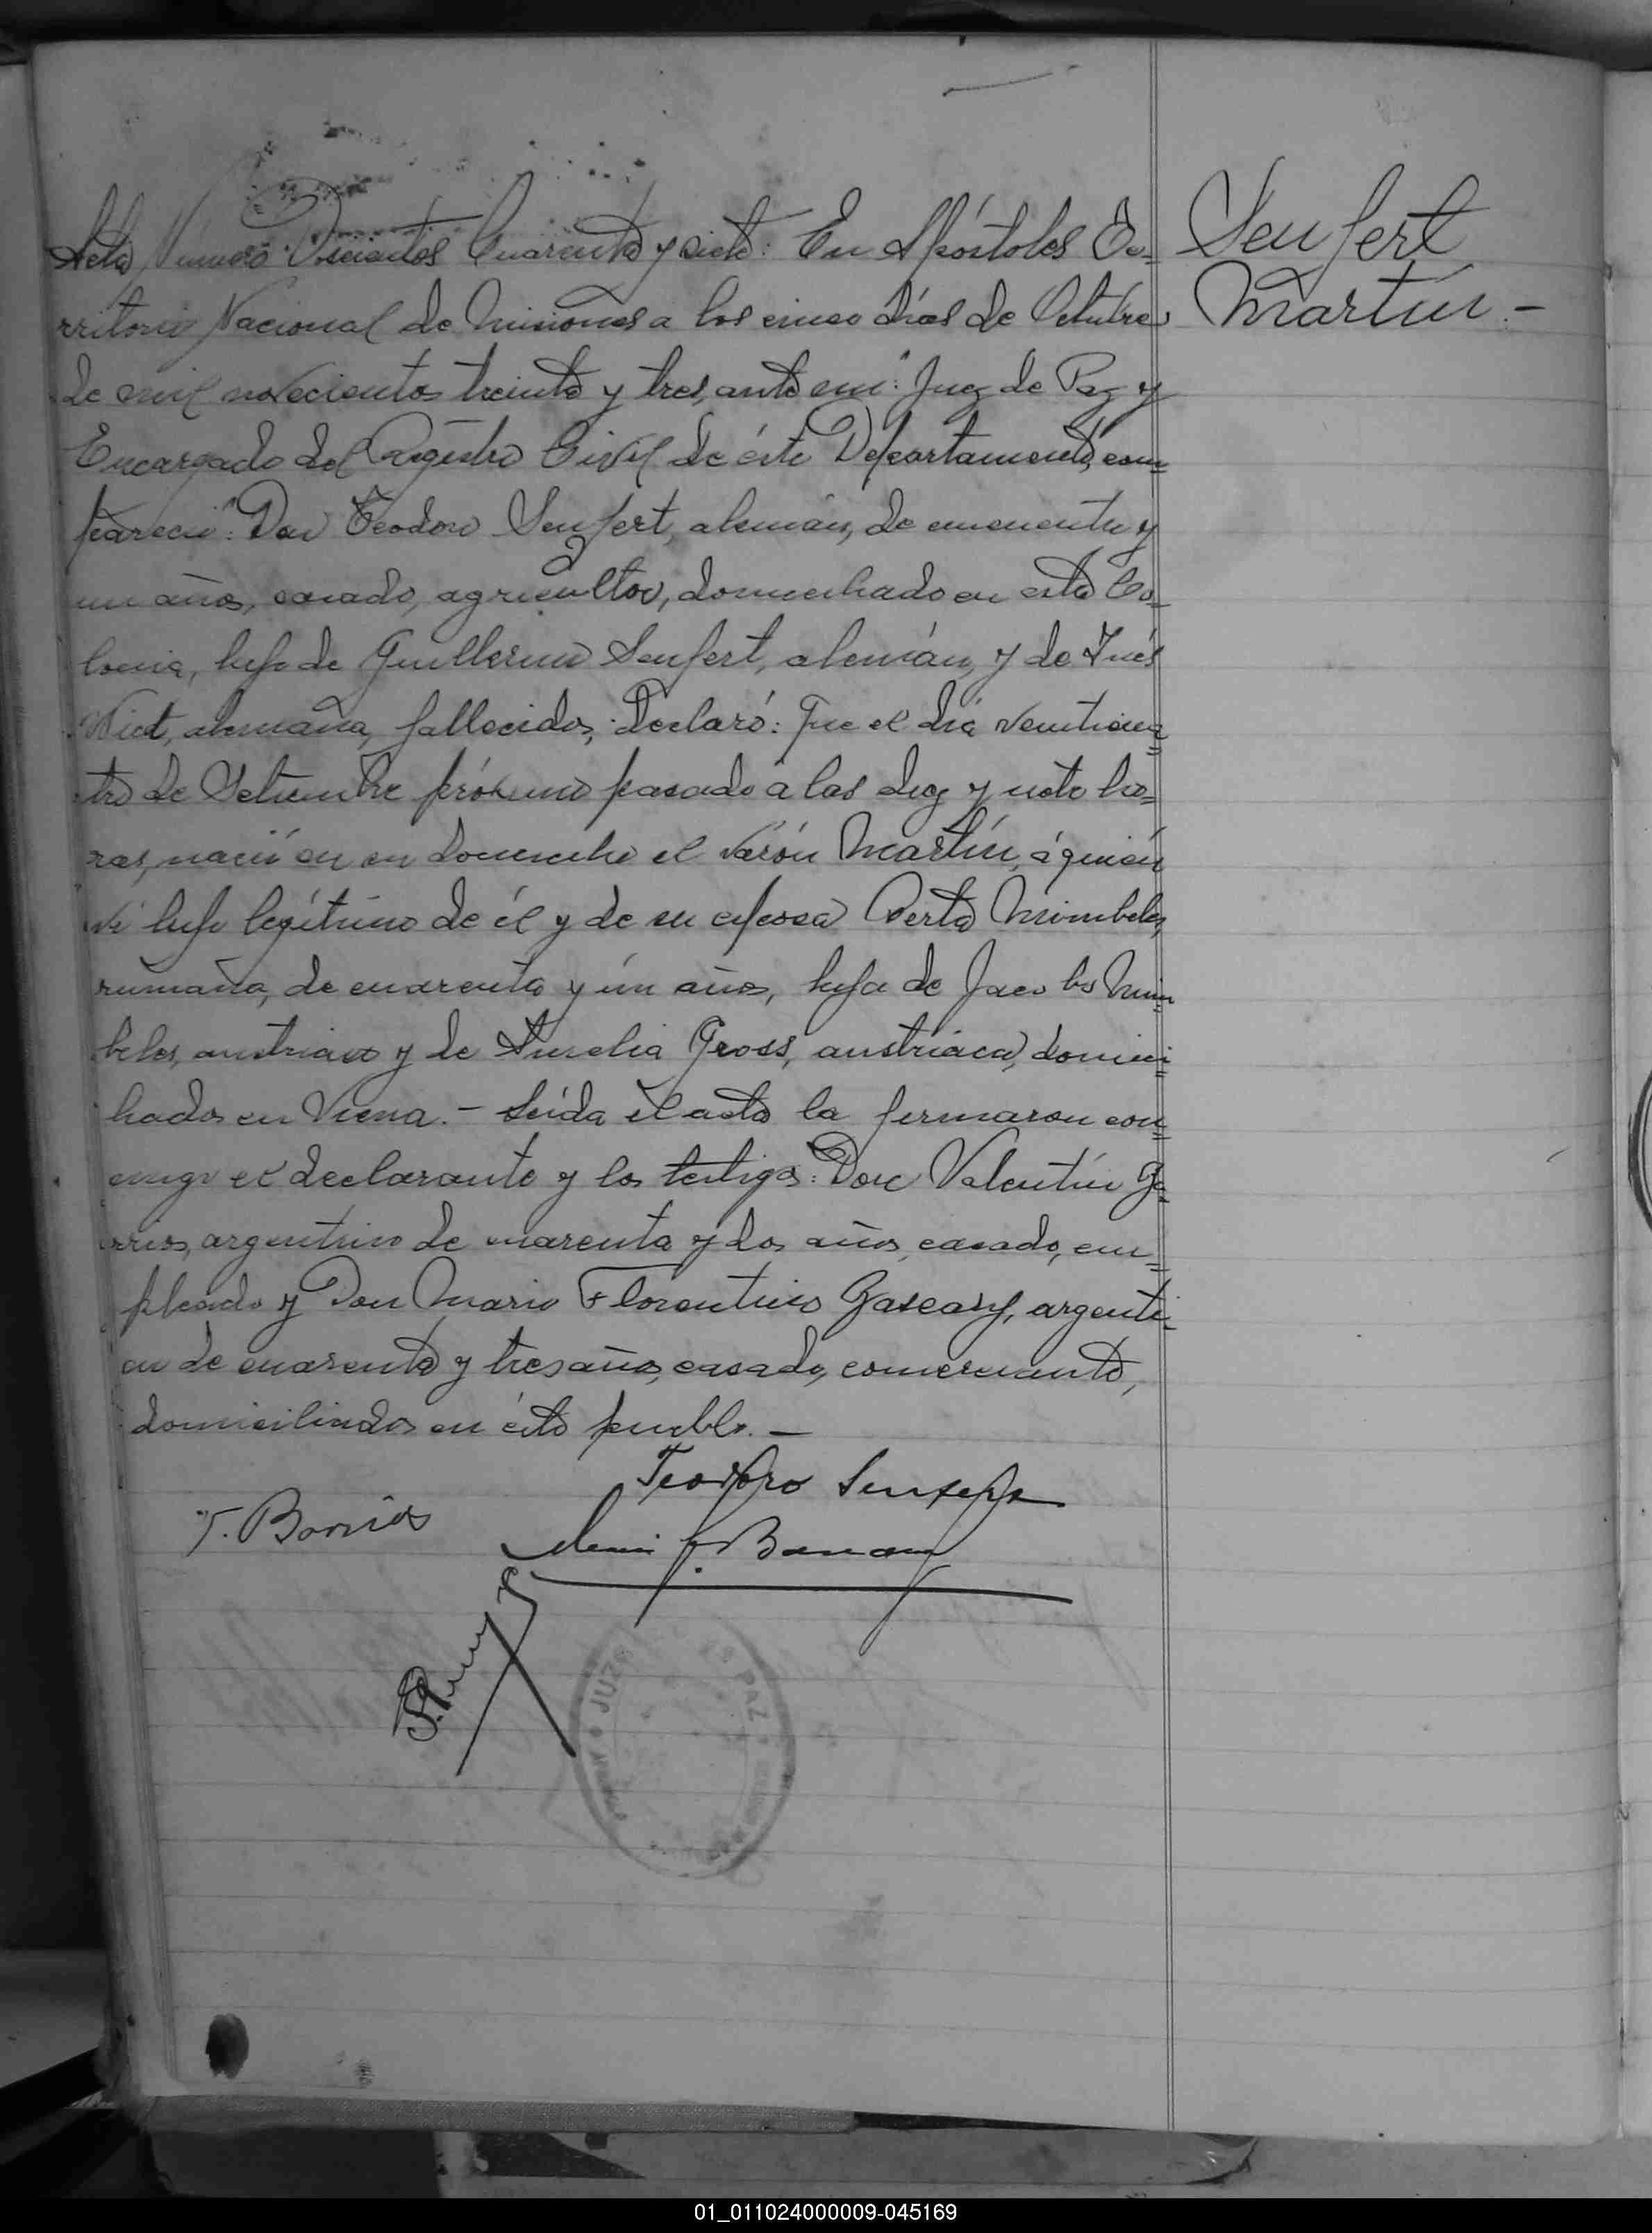 Seufert
Martín.-
Acta Numero Doscientos Cuarenta y siete: En Apóstoles Te-
rritorio Nacional de Misiones a los cinco días de Octubre
de mil novecientos treinta y tres, ante mi: Juez de Paz y
Encargado del Registro Civil de éste Departamento, com=
pareció: Don Teodoro Seufert, alemán, de cincuenta y
un años, casado, agricultor, domiciliado en esta Co-
lonia, hijo de Guillermo Seufert, alemán, y de Inés
alemana, fallecidos; Declaró: Que el día veinticua=
tro de Setiembre próximo pasado a las diez y siete ho=
ras, nació en su domicilio el varón Martín, á quien
vi hijo legítimo de él y de su esposa Berta
rumana, de cuarenta y ún años, hija de Jacobo
austriaco y de Amelia Gross, austríaca, domici=
liados en Viena.- Leída el acta la firmaron con=
migo el declarante y los testigos: Don Valentín
argentino de cuarenta y dos años, casado, em=
pleado y Don Mario Florentino argenti-
no de cuarenta y tres años, casado, comerciante,
domiciliados en éste pueblo.-
Teodoro Seufert
Barrios
JUZG PAZ
01_011024000009-045169